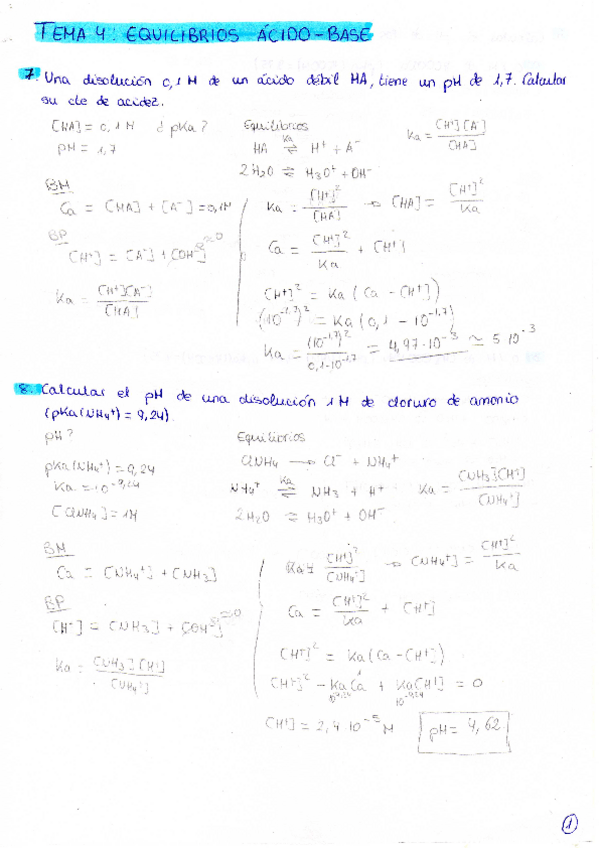 TEMA 4: EQUILIBRIOS ÁCIDO-BASE
7. Una disolución 0,1 M de un ácido débil HA, tiene un pH de 1,7. Calcular
su cte de acidez.
[HA] = 0,1 M ¿pKa?
pH = 1,7
Equilibrios
HA ⇌ H⁺ + A⁻
Ka
2H₂O ⇌ H₃O⁺ + OH⁻
Ka = [H⁺][A⁻] / [HA]
BM
Ca = [HA] + [A⁻] = 0,1M
BP
[H⁺] = [A⁻] + [OH⁻] ≈0
Ka = [H⁺][A⁻] / [HA]
Ka = [H⁺]² / [HA] → [HA] = [H⁺]² / Ka
Ca = [H⁺]² / Ka + [H⁺]
[H⁺]² = Ka (Ca - [H⁺])
(10^-1,7)² = Ka (0,1 - 10^-1,7)
Ka = (10^-1,7)² / 0,1-10^-1,7 = 4,97·10^-3 ≃ 5·10^-3
8. Calcular el pH de una disolución 1M de cloruro de amonio
(pKa(NH₄⁺) = 9,24).
pH?
pKa(NH₄⁺) = 9,24
Ka = 10^-9,24
[ClNH₄] = 1M
Equilibrios
ClNH₄ → Cl⁻ + NH₄⁺
NH₄⁺ ⇌ NH₃ + H⁺
Ka
2H₂O ⇌ H₃O⁺ + OH⁻
Ka = [NH₃][H⁺] / [NH₄⁺]
BM
Ca = [NH₄⁺] + [NH₃]
BP
[H⁺] = [NH₃] + [OH⁻] ≈0
Ka = [NH₃][H⁺] / [NH₄⁺]
Ka = [H⁺]² / [NH₄⁺] → [NH₄⁺] = [H⁺]² / Ka
Ca = [H⁺]² / Ka + [H⁺]
[H⁺]² = Ka (Ca - [H⁺])
[H⁺]² - Ka Ca + Ka [H⁺] = 0
10^-9,24 1 10^-9,24
[H⁺] = 2,4·10^-5 M pH = 4,62
1